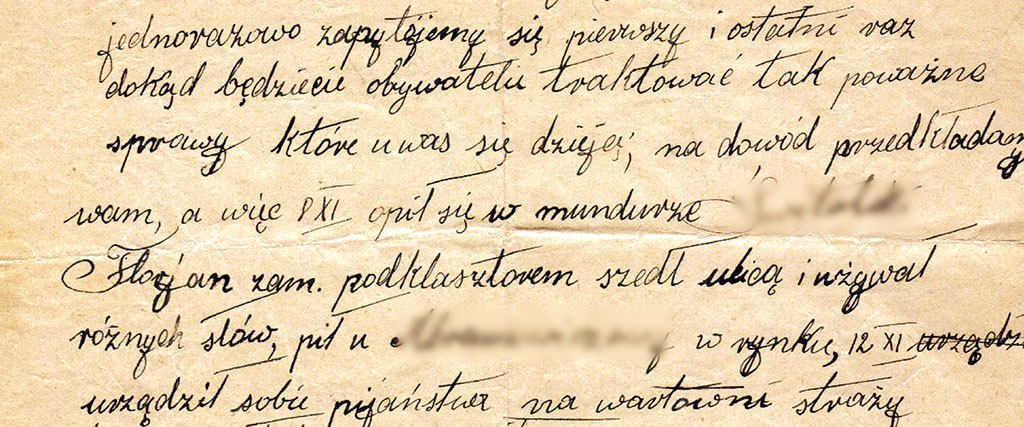 jednorazowo zapytójemy się pierwszy i ostatni raz
dokąd będziecie obywatelu traktować tak poważne
sprawy które uwas się dzieję, na dowód przedkładamy
wam, a więc 8 XI opił się w mundurze
Florjan zam. podklasztorem szedł ulicą i wżywał
różnych słów, pił u w rynku, 12 XI
urządził sobie pijaństwa na wartowni straży